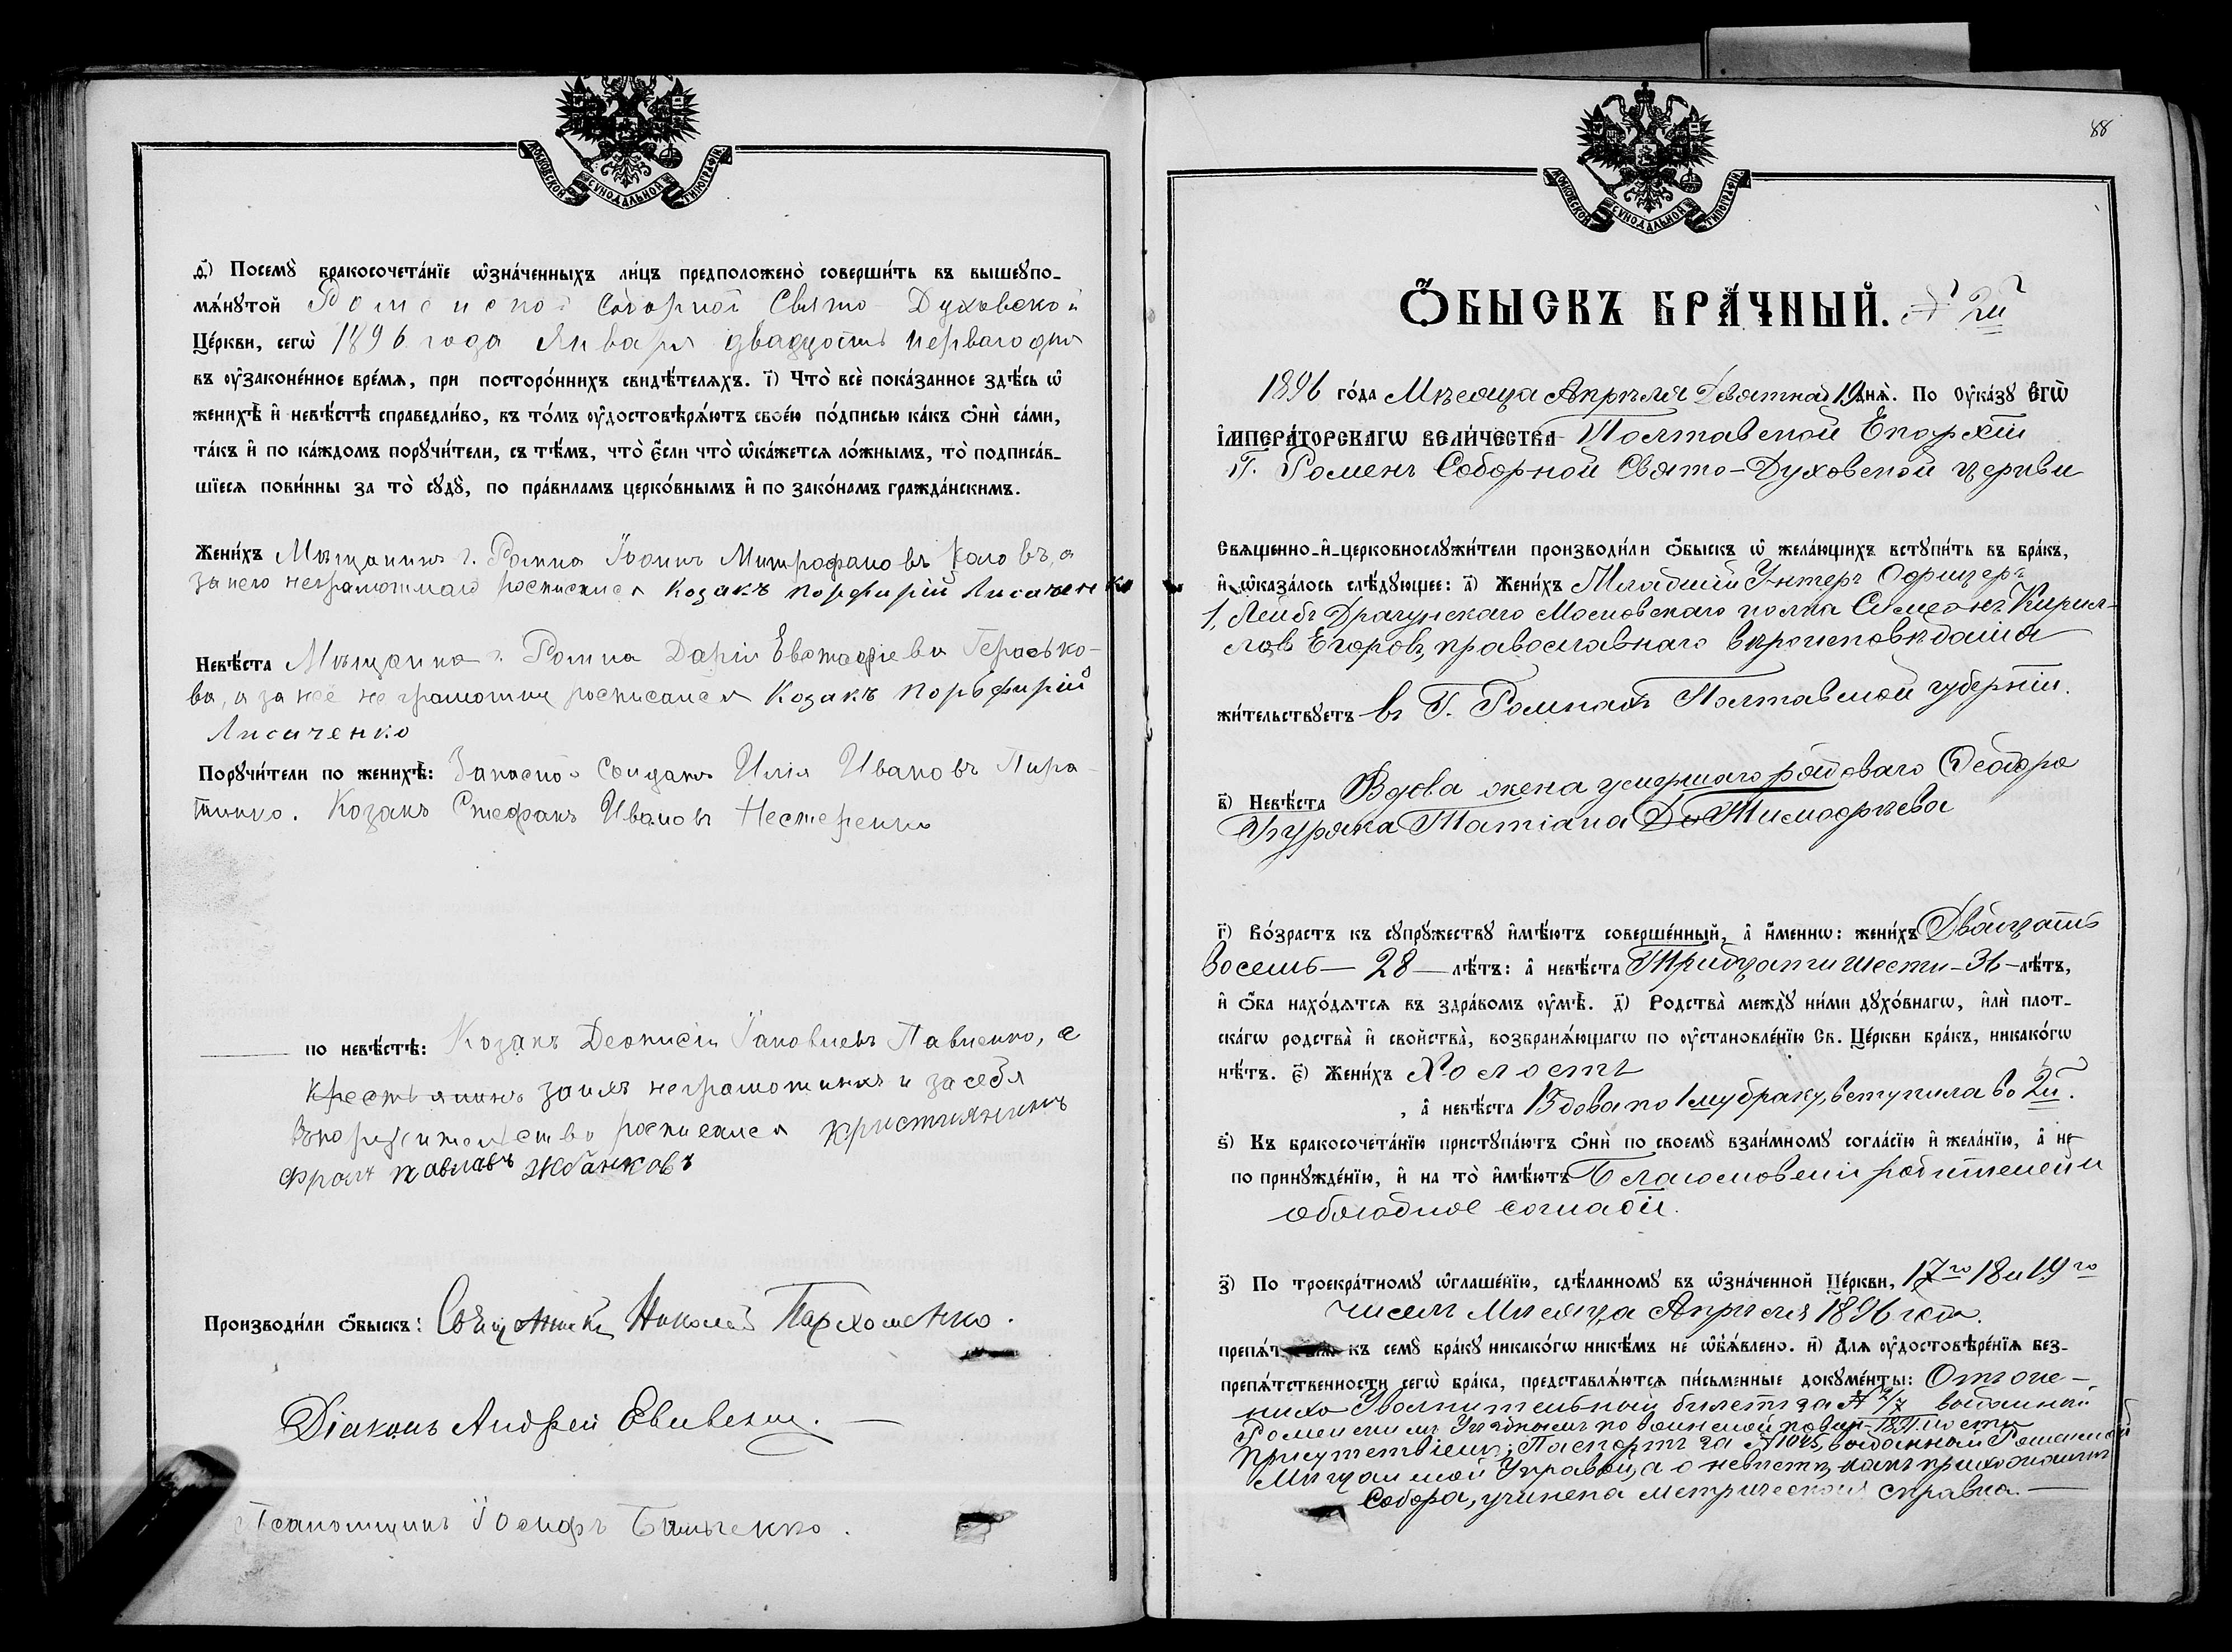 МОСКОВСКОЙ СѴНОДАЛЬНОЙ ТИПОГРАФІИ
д҃) Посемꙋ̀ бракосочета́нїе ѡ҆зна́ченныхъ ли́цъ предположено̀ соверши́ть въ вышеꙋпо-
мѧ́нꙋтой Роменской Соборной Свято-Духовской
Це́ркви, сегѡ̀ 1896 года Января двадцать перваго дня
въ ѹ҆законе́нное вре́мѧ, при посторо́ннихъ свидѣ́телѧхъ. і҃) Что̀ всѐ пока́занное здѣ́сь ѡ҆
женихѣ̀ и҆ невѣ́стѣ справедли́во, въ то́мъ ѹ҆достовѣрѧ́ютъ свое́ю по́дписью ка́къ ѻ҆нѝ са́ми,
та́къ и҆ по ка́ждомъ порꙋчи́тели, съ тѣ́мъ, что̀ є҆́сли что̀ ѡ҆ка́жетсѧ ло́жнымъ, то̀ подписа́в-
шїесѧ пови́нны за то̀ сꙋдꙋ̀, по пра́виламъ церко́внымъ и҆ по зако́намъ гражда́нскимъ.
Жени́хъ Мѣщанинъ г. Ромна Іоаннъ Митрофановъ а
за него неграмотнаго росписался Козакъ Порфирій Лисаченко
Невѣ́ста Мѣщанка г. Ромна Дарія Евстафіева Герасько-
ва, а за неё неграмотную росписался Козакъ Порьфирій
Лисаченко
Порꙋчи́тели по женихѣ̀: Запасной Солдатъ Илія Ивановъ Пиря-
тинко. Козакъ Стефанъ Ивановъ Нестеренко
по невѣ́стѣ: Козакъ Деонисій Іаковлевъ Павленко, а
крестьянинъ за ихъ неграмотныхъ и за себя
въ поручительство росписался кристиянинъ
Фролъ Павлавъ Жбанковъ
Производи́ли ѻ҆́быскъ: Священникъ Николай Пархоменко.
Діаконъ Андрей
Псаломщикъ Іосифъ
88
МОСКОВСКОЙ СѴНОДАЛЬНОЙ ТИПОГРАФІИ
Ѻ҆́БЫСКЪ БРА́ЧНЫЙ. № 2й
1896 го́да Мѣсяца Апрѣля Девятнад 19 днѧ̀. По ѹ҆ка́зꙋ Є҆гѡ̀
І҆мпера́торскагѡ вели́чества Полтавской Епархіи
Г. Роменъ Соборной Свято-Духовской церкви
Свѧщенно-и҆-церковнослꙋжи́тели производи́ли ѻ҆́быскъ ѡ҆ жела́ющихъ встꙋпи́ть въ бра́къ,
и҆ ѡ҆каза́лось слѣ́дꙋющее: а҃) Жени́хъ Младшій Унтеръ Офицеръ
1, Лейбъ Драгунскаго Московскаго полка Симеонъ Кирил-
ловъ Егоровъ, православнаго вѣроисповѣданія
жи́тельствꙋетъ въ Г. Ромнахъ Полтавской губерніи.
в҃) Невѣ́ста Вдова жена умершаго рядоваго Ѳеодора
Татіана До Тимофѣева
г҃) Во́зрастъ къ сꙋпрꙋ́жествꙋ и҆мѣ́ютъ соверше́нный, а҆ и҆́меннѡ: жени́хъ Двадцать
восемь — 28 — лѣ́тъ: а҆ невѣ́ста Тридцати шести - 36 - лѣ́тъ,
и҆ ѻ҆́ба нахо́дѧтсѧ въ здра́вомъ ѹ҆мѣ̀. д҃) Родства̀ междꙋ̀ ни́ми дꙋхо́внагѡ, и҆лѝ плот-
ска́гѡ родства̀ и҆ свойства̀, возбранѧ́ющагѡ по ѹ҆становле́нїю Св. Це́ркви бра́къ, никако́гѡ
нѣ́тъ. є҃) Жени́хъ Холостъ
, а҆ невѣ́ста Вдова по 1му браку, вступила во 2й.
ѕ҃) Къ бракосочета́нїю пристꙋпа́ютъ ѻ҆нѝ по своемꙋ̀ взаи́мномꙋ согла́сїю и҆ жела́нїю, а҆ не
по принꙋжде́нїю, и҆ на то̀ и҆мѣ́ютъ Благословеніе родителей и
обоюдное согласіе.
з҃) По троекра́тномꙋ ѡ҆глаше́нїю, сдѣ́ланномꙋ въ ѡ҆зна́ченной Це́ркви, 17го 18 и 19го
числъ Мѣсяца Апрѣля 1896 года.
препѧ́т къ семꙋ̀ бра́кꙋ никако́гѡ никѣ́мъ не ѡ҆б̾ѧ́влено. и҃) Для ѹ҆достовѣре́нїѧ без-
препѧ́тственности сегѡ̀ бра́ка, представлѧ́ютсѧ пи́сьменные докꙋме́нты: О же-
нихѣ Увольнительный билетъ за № 2/7 выданный
Роменскимъ Уѣзднымъ по воинской повинности
Присутствіемъ; Паспортъ за № 1025, выданный Роменской
Мѣщанской Управой, а о невѣстѣ, какъ прихожанкѣ
Собора, учинена метрическая справка. —